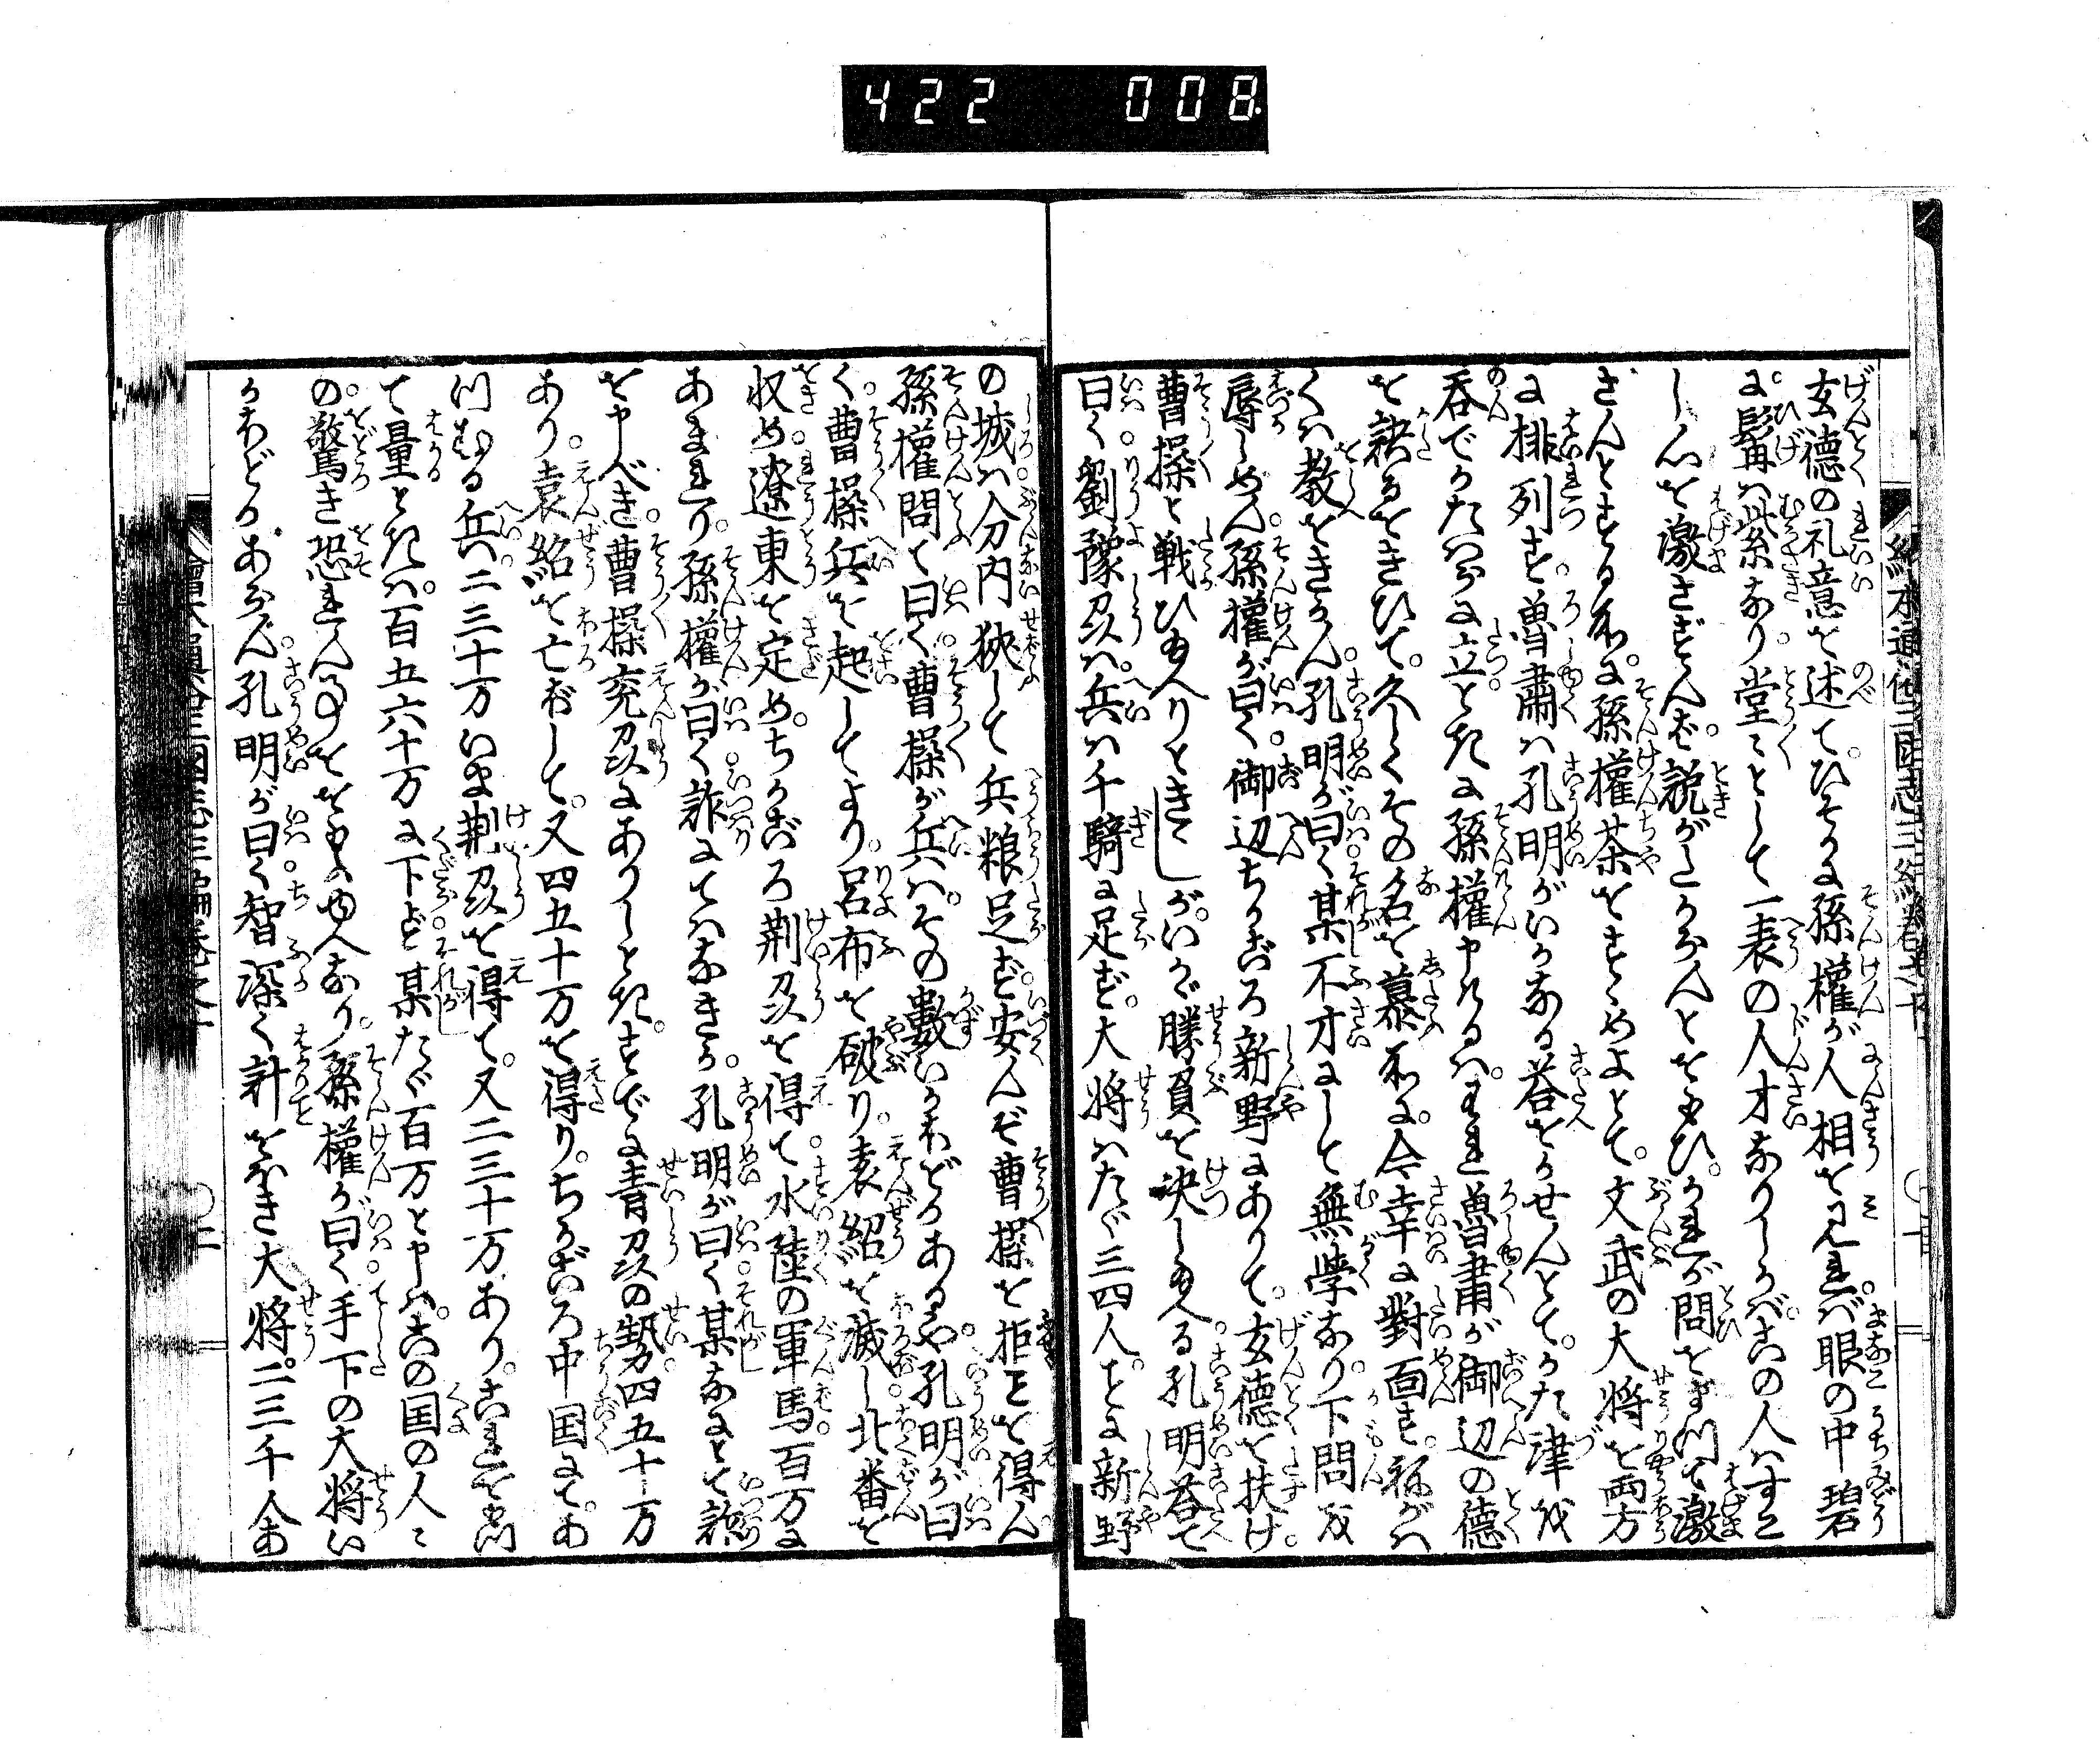 422 008
玄德の礼意を述て。ひそかに孫權が人相を見れば。眼の中碧
に。鬚は紫なり。堂〻として一表の人才なりしかば。この人はすこ
し心を激さずんば。説がたからんとおもひ。かれが問をまつて激
さんとする所に。孫權茶をすゝめよとて。文武の大將を両方
に排列す。魯肅は孔明がいかなる荅をかせんとて。かた津を
呑でかたはらに立とたに孫權申けるは。われ魯肅が御辺の德
を談るをきひて。久しくその名を慕所に。今幸に對面す。ねがは
くは教をきかん。孔明が曰く某不才にして無學なり。下問を
辱しめん。孫權が曰く御辺ちかごろ新野にありて。玄德を扶け。
曹操と戦ひ給へりときゝしが。いかゞ勝負を決し給へる。孔明荅て
曰く。劉豫州は。兵は千騎に足ず。大将はたゞ三四人。ことに新野
の城は分内狹して兵粮足ず。安んぞ曹操を拒ことを得ん。
孫權問て曰く曹操が兵は。その數いかほどかあるや。孔明が曰
く。曹操兵を起してより。呂布を破り。袁紹を滅し。北番を
收め。遼東を定め。ちかごろ荆州を得て。水陸の軍馬百万に
あまれり。孫權が曰く詐にてはなきか。孔明が曰く。某なにとて詐
を申べき。曹操兗州にありしとき。すでに青州の勢四五十万
あり。袁紹を亡ぼして。又四五十万を得たり。ちかごろ中国にて。あ
つむる兵。二三十万いま荆州を得て。又二三十万あり。これをもつ
て量ときは。百五六十万に下ず。某たゞ百万と申は。この国の人〻
の。驚き恐れん事をおもふゆへなり。孫權が曰く。手下の大將い
かほどかあらん。孔明が曰く。智深く計をほき大將。二三千余あ